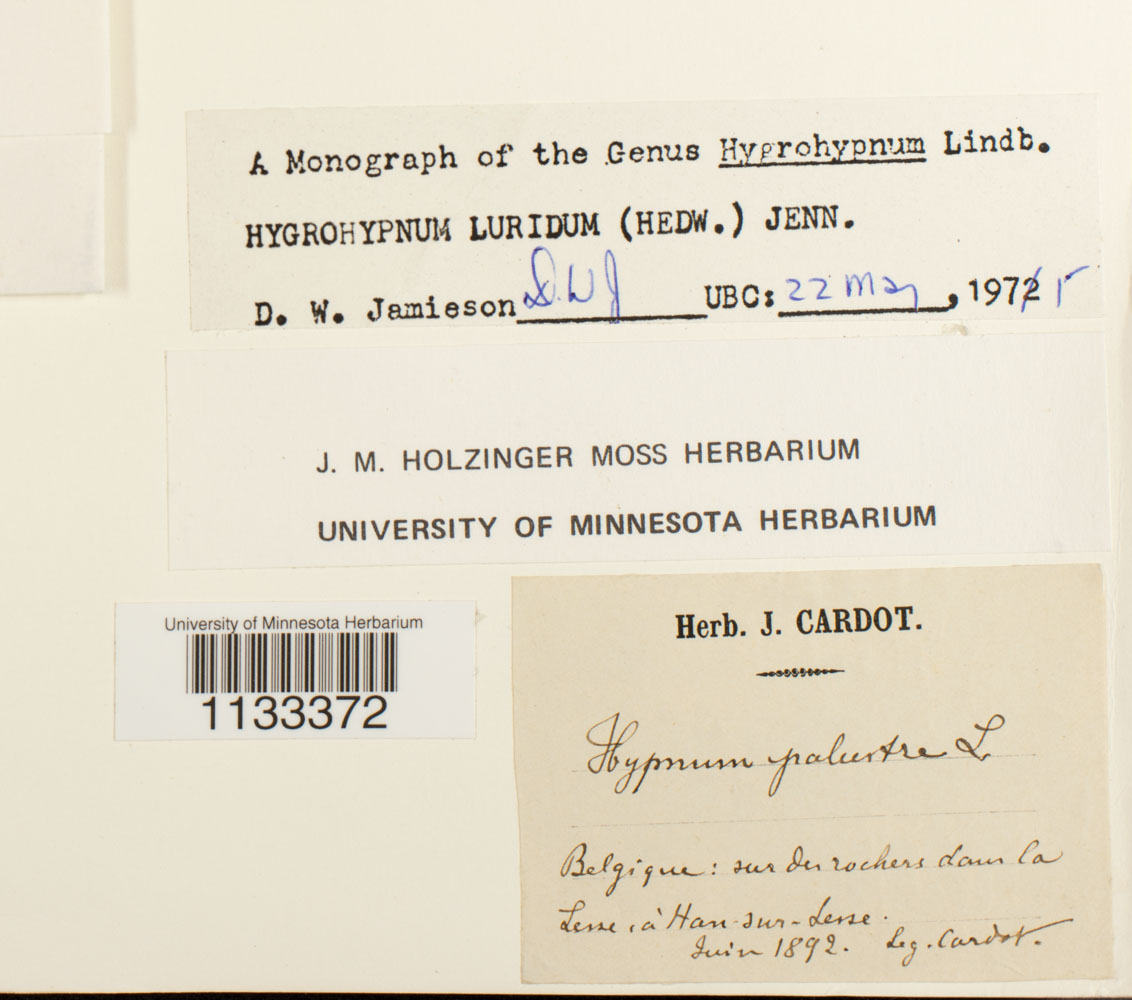 A Monograph of the Genus Hygrohypnum Lindb.
HYGROHYPNUM LURIDUM (HEDW.) JENN.
D. W. Jamieson D.W.J UBC: 22 May, 1972 5
J. M. HOLZINGER MOSS HERBARIUM
UNIVERSITY OF MINNESOTA HERBARIUM
University of Minnesota Herbarium
1133372
Herb. J. CARDOT.
Hypnum palustre L
Belgique: sur des rochers dans la
Lesse, à Han-sur-Lesse.
Juin 1892. Leg. Cardot.